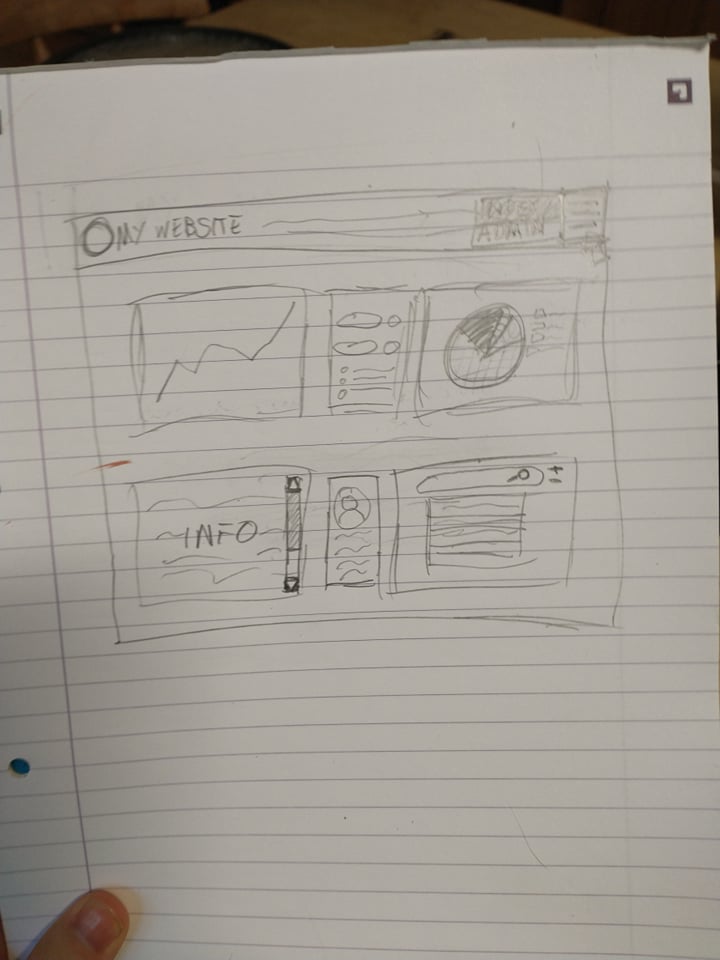 MY WEBSITE
ADMIN
INFO